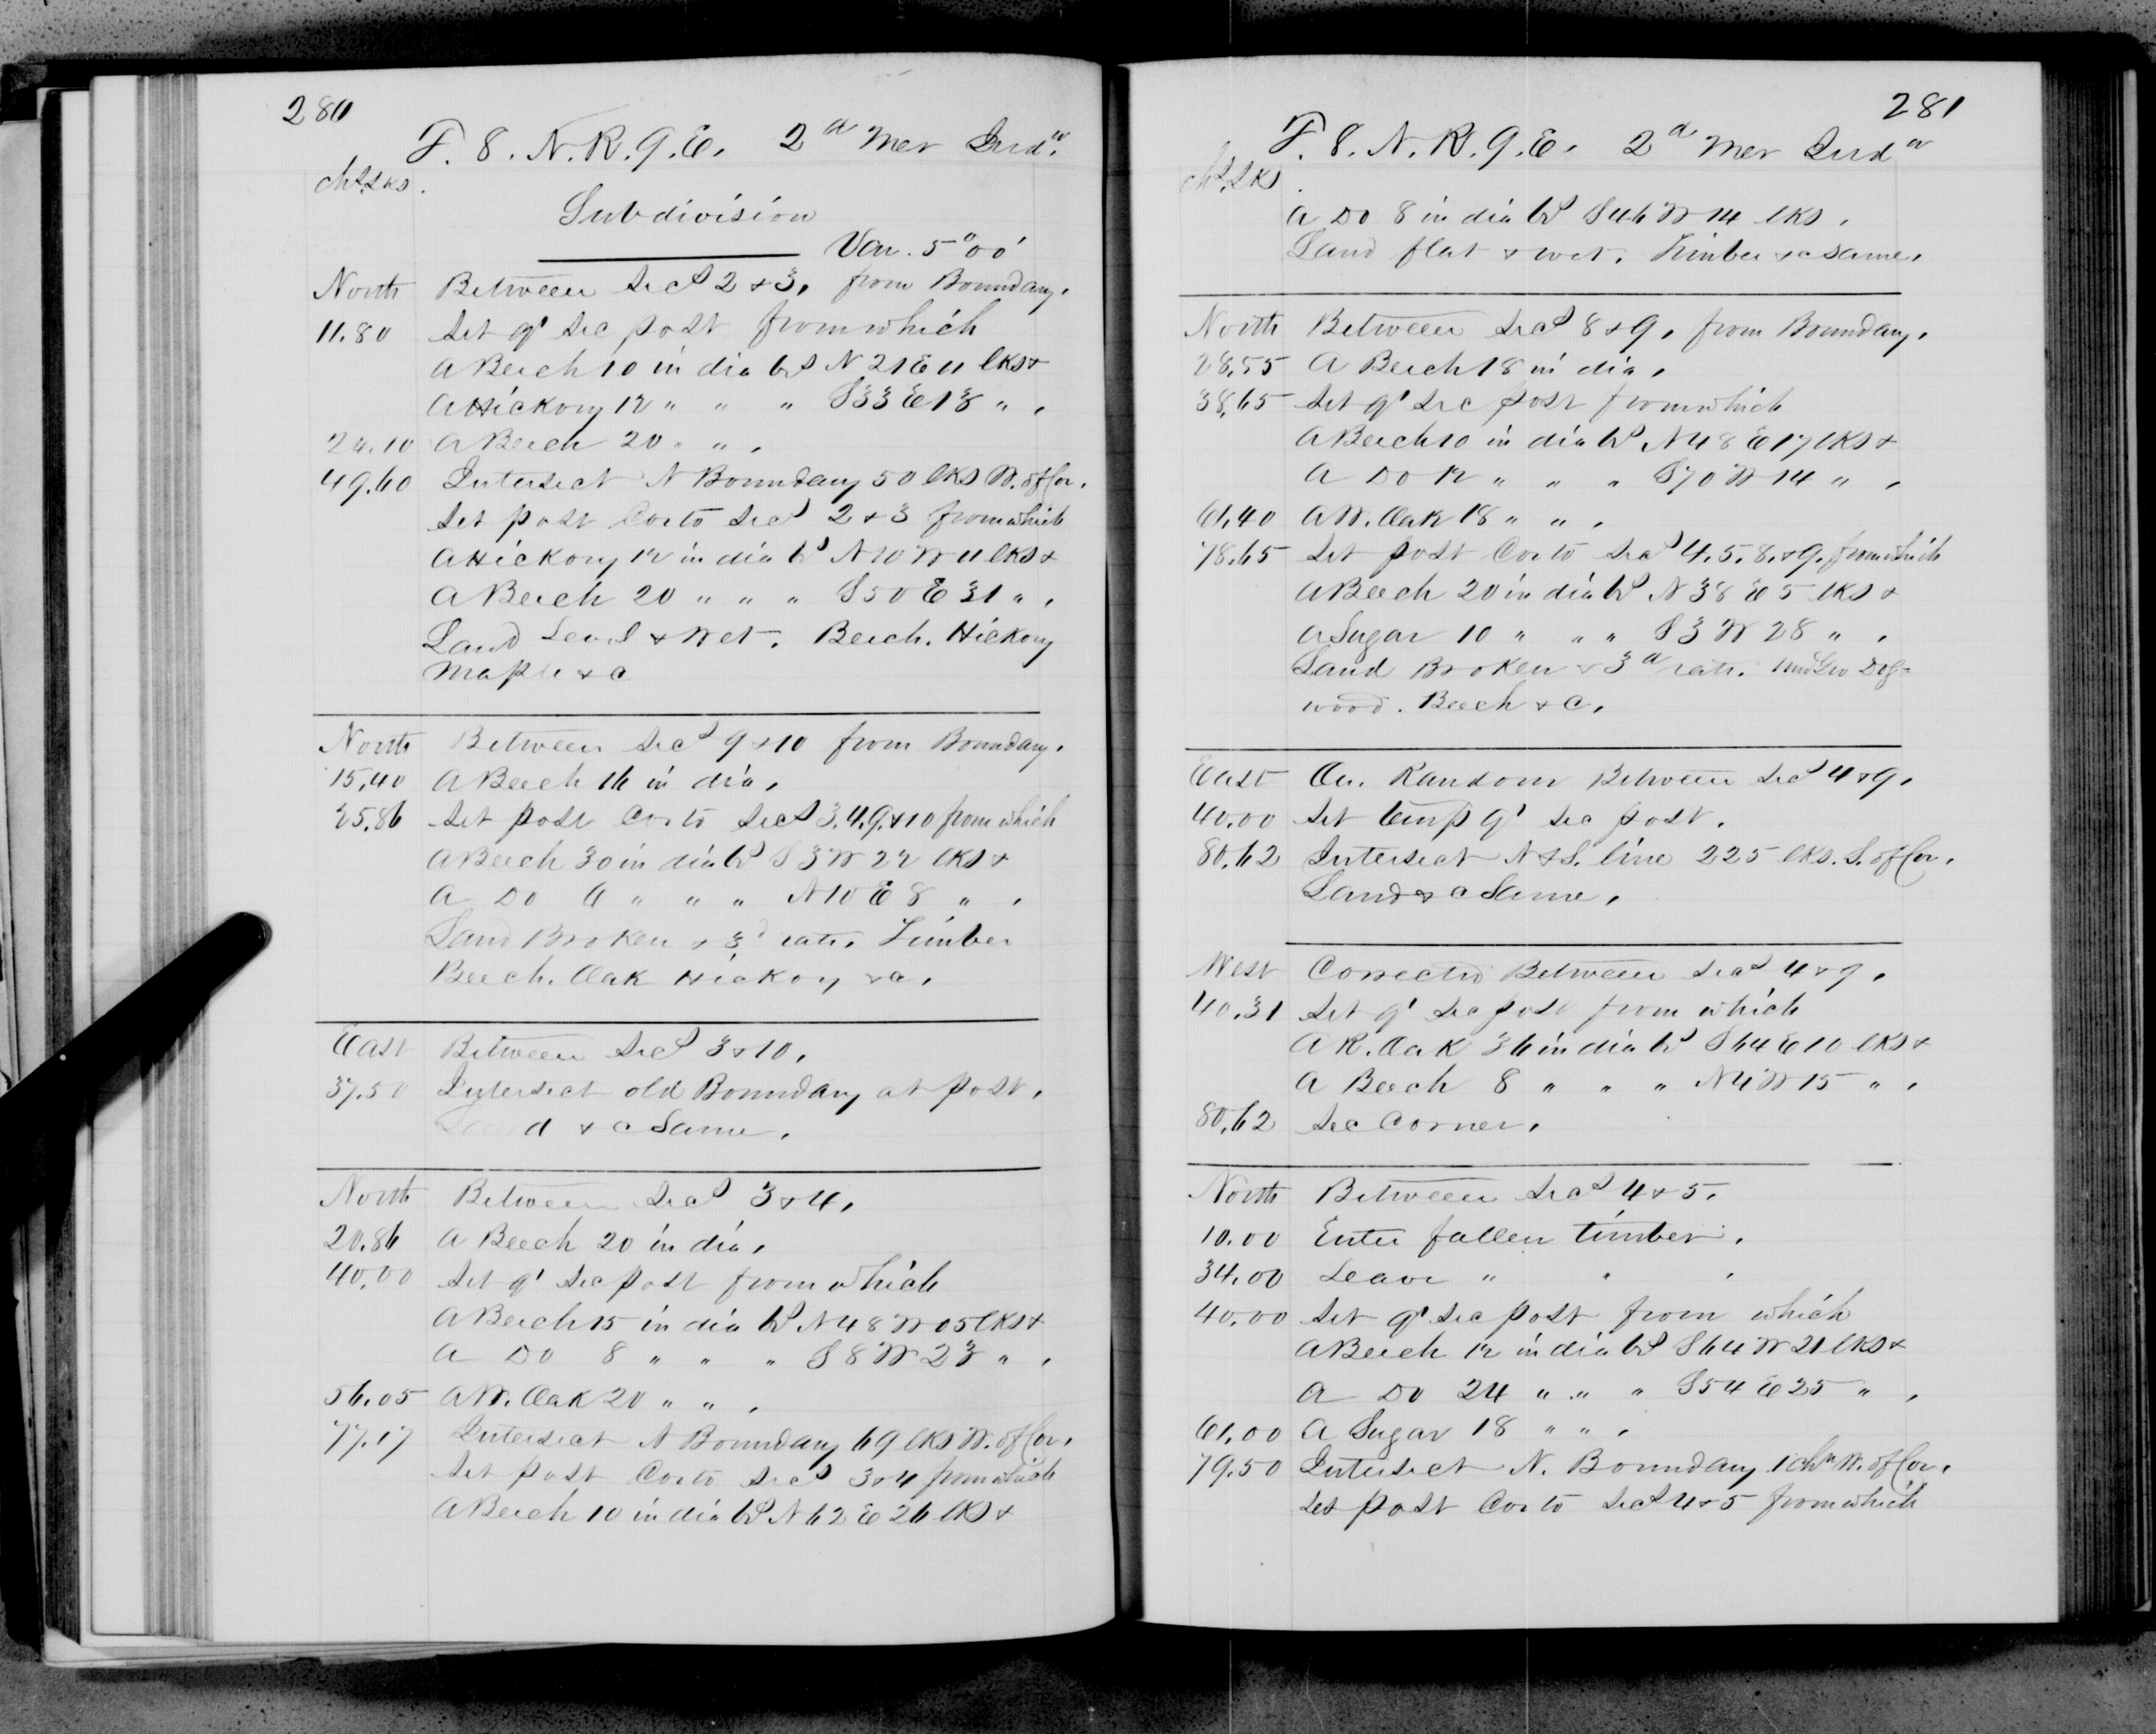 280
T. 8. N. R. 9. E. 2d Mer Inda.
Chs. Lks.
Subdivision
Var. 5°00'
North Between Secs 2 & 3, from Boundary.
11.80 Set qr sec post from which
A Beech 10 in dia brs N 21 E 11 lks &
A Hickory 12 " " " S 33 E 13 " .
24.10 A Beech 20 " " .
49.60 Intersect N Boundary 50 lks W. of Cor.
Set post Cor to Secs 2 & 3 from which
A Hickory 12 in dia brs N 10 W 11 lks &
A Beech 20 " " " S 50 E 31 " .
Land Level & Wet. Beech. Hickory
Maple &c
North Between Secs 9 & 10 from Boundary.
15.40 A Beech 16 in dia.
25.86 Set post Cor to Secs 3. 4. 9. & 10 from which
A Beech 30 in dia brs S 3 W 22 lks &
A Do 6 " " " N 10 E 8 " .
Land Broken & 3d rate. Timber
Beech. Oak Hickory &c.
East Between Secs 3 & 10.
37.50 Intersect old Boundary at post.
Land &c Same.
North Between Secs 3 & 4.
20.86 A Beech 20 in dia.
40.00 Set qr sec post from which
A Beech 15 in dia brs N 48 W 05 lks &
A Do 8 " " " S 8 W 23 " .
56.05 A W. Oak 20 " " .
77.17 Intersect N Boundary 69 lks W. of Cor.
Set post Cor to Secs 3 & 4 from which
A Beech 10 in dia brs N 62 E 26 lks &
281
T. 8. N. R. 9. E. 2d Mer Inda
Chs. Lks.
A Do 8 in dia brs S 46 W 14 lks.
Land flat & wet. Timber &c same.
North Between Secs 8 & 9, from Boundary.
28.55 A Beech 18 in dia.
38.65 Set qr sec post from which
A Beech 10 in dia brs N 48 E 17 lks &
A Do 12 " " " S 70 W 14 " .
61.40 A W. Oak 18 " " .
78.65 Set post Cor to Secs 4. 5. 8. & 9. from which
A Beech 20 in dia brs N 38 E 5 lks &
A Sugar 10 " " " S 3 W 28 " .
Land Broken & 3d rate. Und Gro Dog-
wood. Beech &c.
East On Random Between Secs 4 & 9.
40.00 Set temp qr sec post.
80.62 Intersect N & S. line 225 lks. S. of Cor.
Land &c Same.
West Corrected Between Secs 4 & 9.
40.31 Set qr sec post from which
A R. Oak 36 in dia brs S 64 E 10 lks &
A Beech 8 " " " N 4 W 15 " .
80.62 Sec Corner.
North Between Secs 4 & 5.
10.00 Enter fallen timber.
34.00 Leave " " .
40.00 Set qr sec post from which
A Beech 12 in dia brs S 64 W 21 lks &
A Do 24 " " " S 54 E 25 " .
61.00 A Sugar 18 " " .
79.50 Intersect N. Boundary 1 chn W. of Cor.
Set post Cor to Secs 4 & 5 from which